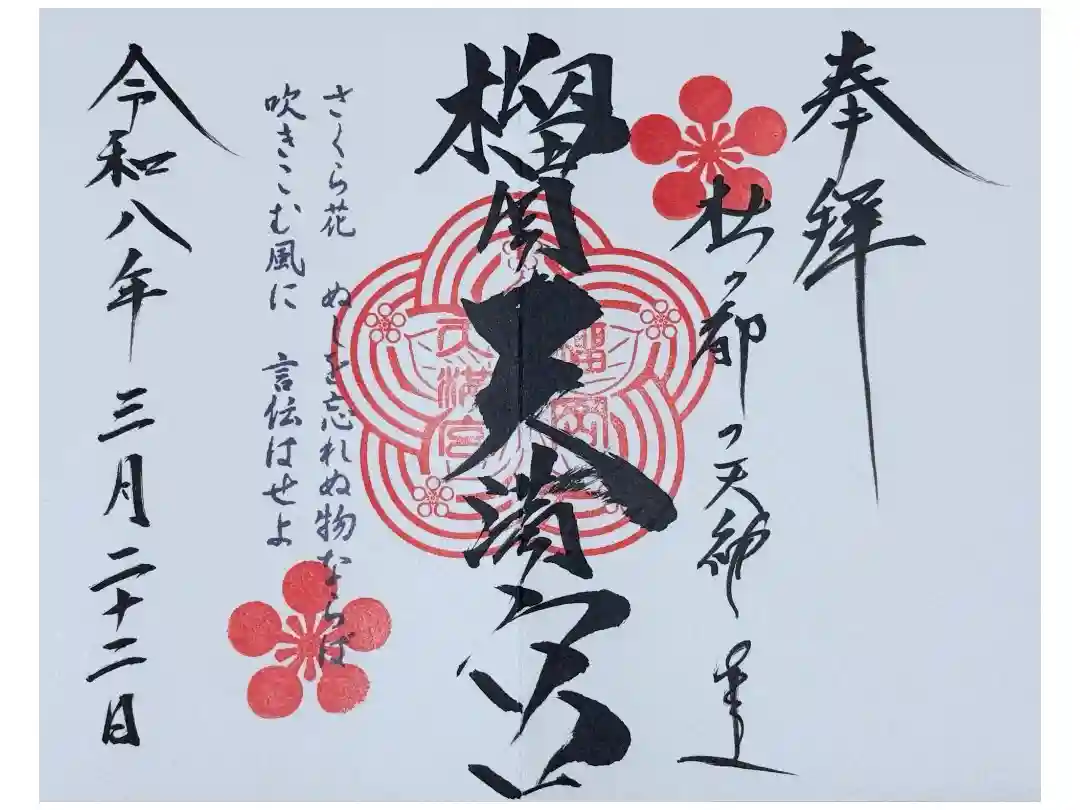 奉拝
杜の都の天神
榴岡天満宮
榴岡
天満宮
さくら花 ぬしを忘れぬ物ならば
吹きこむ風に 言伝はせよ
令和八年 三月二十二日